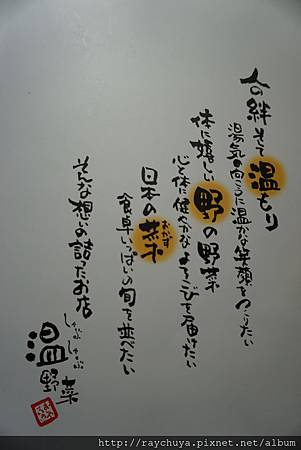 人の絆 そして温もり
湯気の向こうに温かな笑顔をつくりたい
体に嬉しい野の野菜
心と体に健やかなよろこびを届けたい
日本の菜
おかず
食卓いっぱいの旬を並べたい
そんな想いの詰ったお店
しゃぶしゃぶ
温野菜
http://raychuya.pixnet.net/album